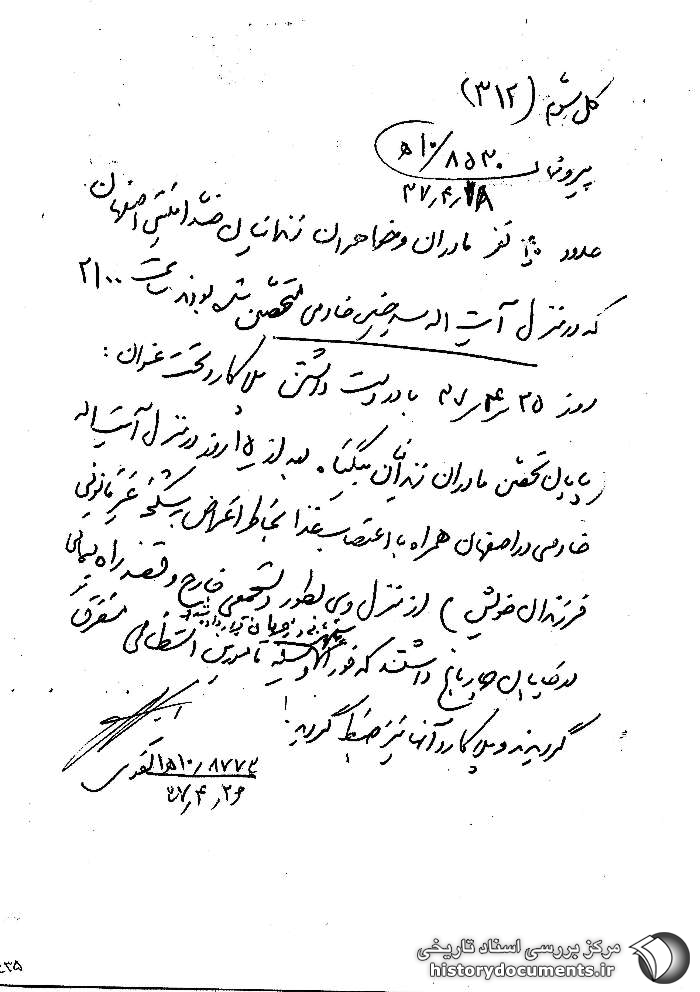 کل سوم (۳۱۲)
پیرو شماره ۸۵۳۰/۱۰ﻫ
۳۷٫۴٫۱۸
حدود نفر مادران و خواهران زندانیان ضد امنیتی اصفهان
که در منزل آیت اله سید حسین خادمی متحصن شده بودند ساعت ۲۱۰۰
روز ۲۵٫۴٫۳۷ با در دست داشتن پلاکارد تحت عنوان :
( پایان تحصن مادران زندانیان بعد از ۱۵ روز در منزل آیت اله
خادمی در اصفهان همراه با اعتصاب غذا بخاطر اعتراض به شکنجه غیرقانونی
فرزندان خویش ) از منزل وی بطور دستجمعی خارج و قصد راه پیمائی
در خیابان چهارباغ داشتند که فوراً بوسیله مامورین انتظامی متفرق
گردیدند و پلاکارد آنها نیز ضبط گردید.
۸۷۷۲/۱۰ﻫ
۳۷٫۴٫۲۶
۴۳۵
مرکز بررسی اسناد تاریخی
historydocuments.ir